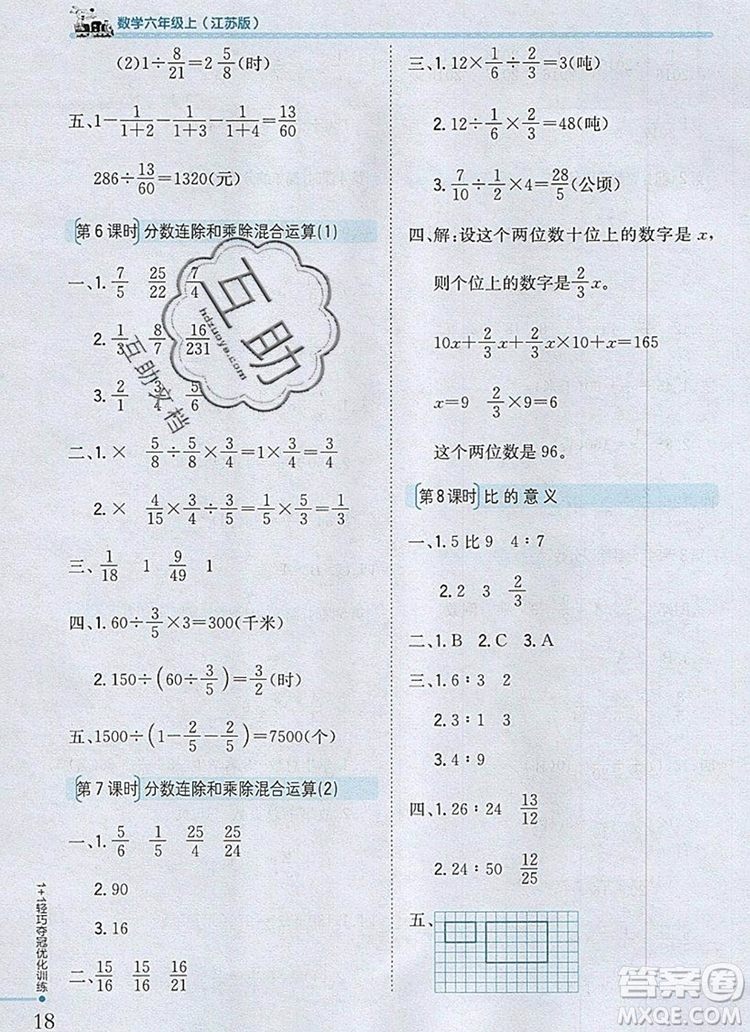 数学六年级上(江苏版)
(2)1÷8/21=2 5/8(时)
五、1-1/(1+2)-1/(1+3)-1/(1+4)=13/60
286÷13/60=1320(元)
第6课时 分数连除和乘除混合运算(1)
一、1. 7/5 25/22 7/4
2. 1/3 8/7 16/231
3. 2/1 3/4
二、1.× 5/8÷5/8×3/4=1×3/4=3/4
2.× 4/15×3/4÷3/5=1/5÷3/5=1/3
三、1/18 1 9/49 1
四、1.60÷3/5×3=300(千米)
2.150÷(60÷3/5)=3/2(时)
五、1500÷(1-2/5-2/5)=7500(个)
第7课时 分数连除和乘除混合运算(2)
一、1. 5/6 6/5 24/25 25/24
2.90
3.16
二、15/16 15/16 16/21
三、1.12×1/6÷2/3=3(吨)
2.12÷1/6×2/3=48(吨)
3. 7/10÷1/10×4/5=28/5(公顷)
四、解:设这个两位数十位上的数字是x,
则个位上的数字是2/3x。
10x+2/3x+2/3x×10+x=165
x=9 2/3×9=6
这个两位数是96。
第8课时 比的意义
一、1.5比9 4∶7
2.2 3 2/3
二、1.B 2.C 3.A
三、1.6∶3 2
2.3∶1 3
3.4∶9
四、1.26∶24 13/12
2.24∶50 12/25
五、
1+1轻巧夺冠优化训练
18
互助
hdzuoye.com
互助文档
答案圈
MXQE.COM